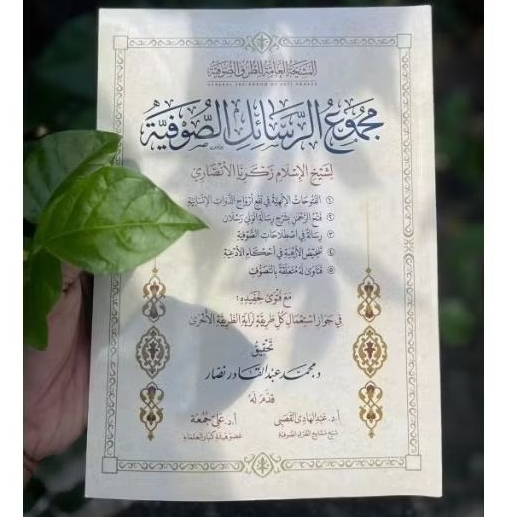 المشيخة العامة للطرق الصوفية
مَجْمُوعُ الرَّسَائِلِ الصُّوفِيَّةِ
لِشَيْخِ الإِسْلَامِ زَكَرِيَّا الأَنْصَارِي
١ الفُتُوحَاتُ الإِلَهِيَّةُ فِي نَفْعِ أَرْوَاحِ الذَّوَاتِ الإِنْسَانِيَّةِ
٢ فَتْحُ الرَّحْمَنِ بِشَرْحِ رِسَالَةِ الوَلِيِّ رَسْلَان
٣ رِسَالَةٌ فِي اصْطِلَاحَاتِ الصُّوفِيَّةِ
٤ تَلْخِيصُ الأَزْهِيَةِ فِي أَحْكَامِ الأَدْعِيَةِ
٥ فَتَاوَى لَهُ مُتَعَلِّقَةٌ بِالتَّصَوُّفِ
مَعَ فَتْوَى لِحَفِيدِهِ:
فِي جَوَازِ اسْتِعْمَالِ كُلِّ طَرِيقَةٍ لِرَايَةِ الطَّرِيقَةِ الأُخْرَى
تحقيق
د. محمد عبد القادر نصار
قدَّم له
أ.د. عبد الهادي القصبي
شيخ مشايخ الطرق الصوفية
أ.د. علي جمعة
عضو هيئة كبار العلماء